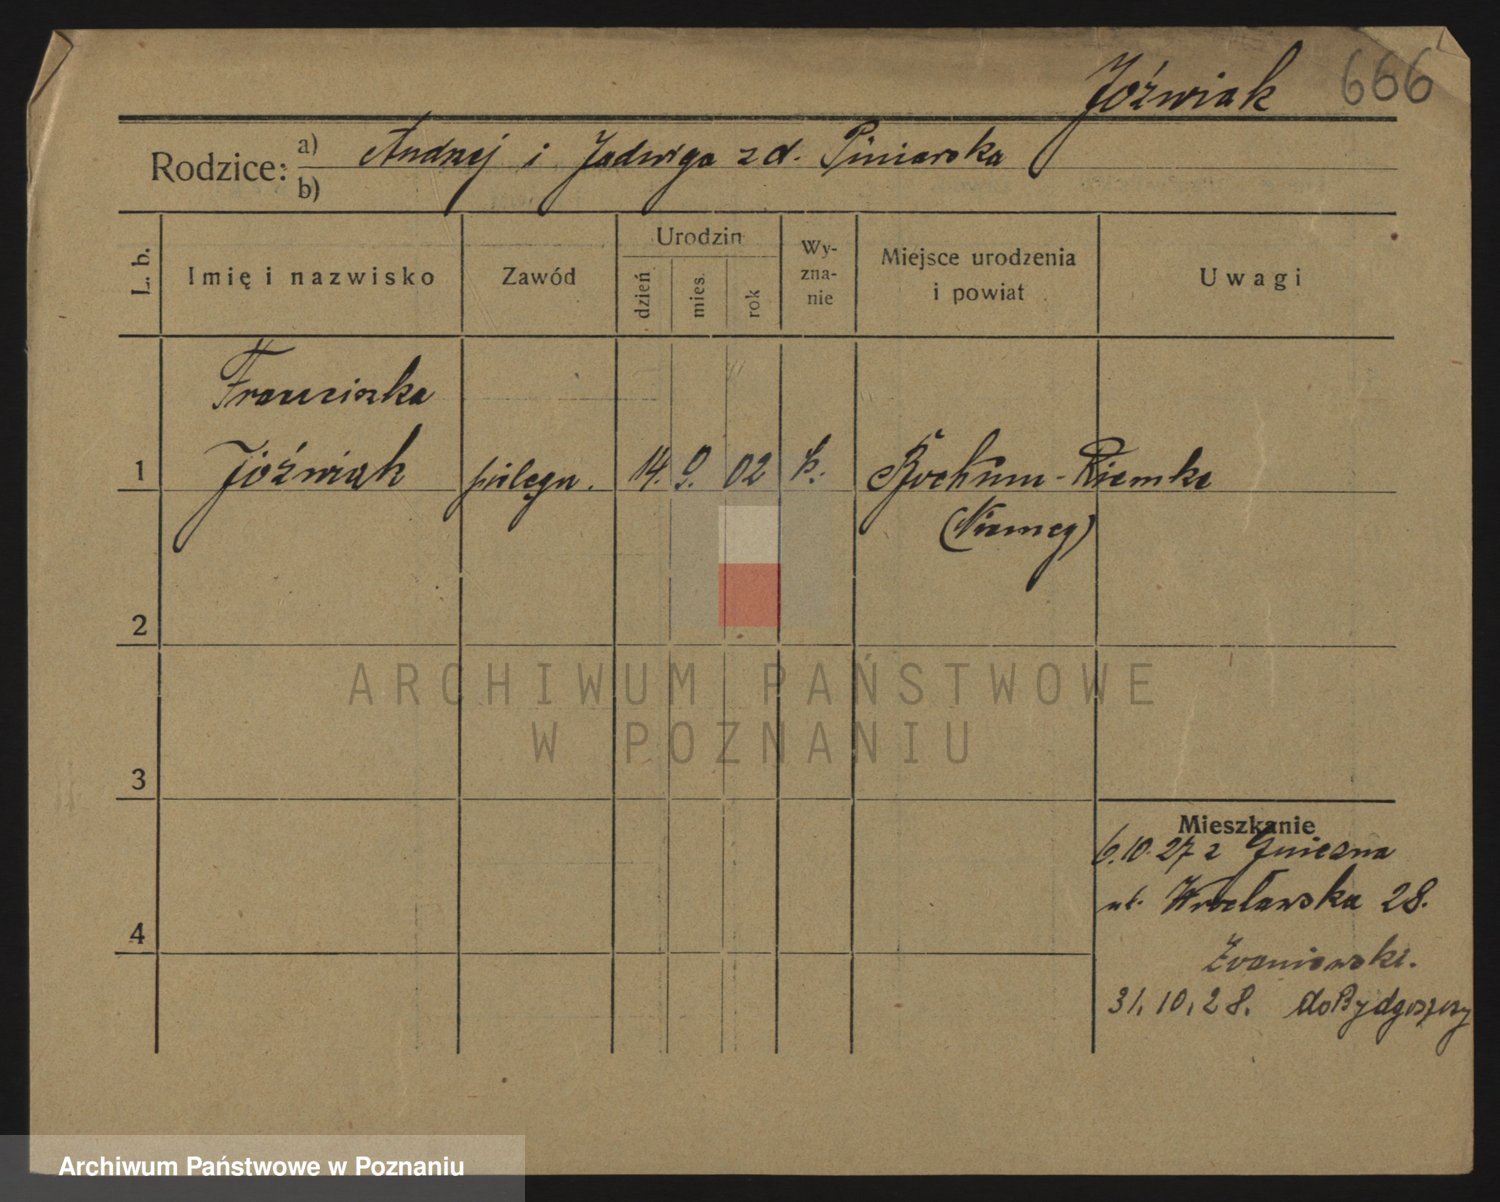 Jóźwiak 666
Rodzice: a) Andrzej i Jadwiga z d. Piniarska
b)
L. b.
Imię i nazwisko
Zawód
Urodzin
dzień
mies.
rok
Wy-
zna-
nie
Miejsce urodzenia
i powiat
Uwagi
Franciszka
1 Jóźwiak pielęgn. 14. 9. 02 k. Bochum-Riemke
(Niemcy)
2
3
4
Mieszkanie
6.10.27 z Gniezna
ul. Wrocławska 28.
31.10.28. do Bydgoszczy
ARCHIWUM PAŃSTWOWE
W POZNANIU
Archiwum Państwowe w Poznaniu